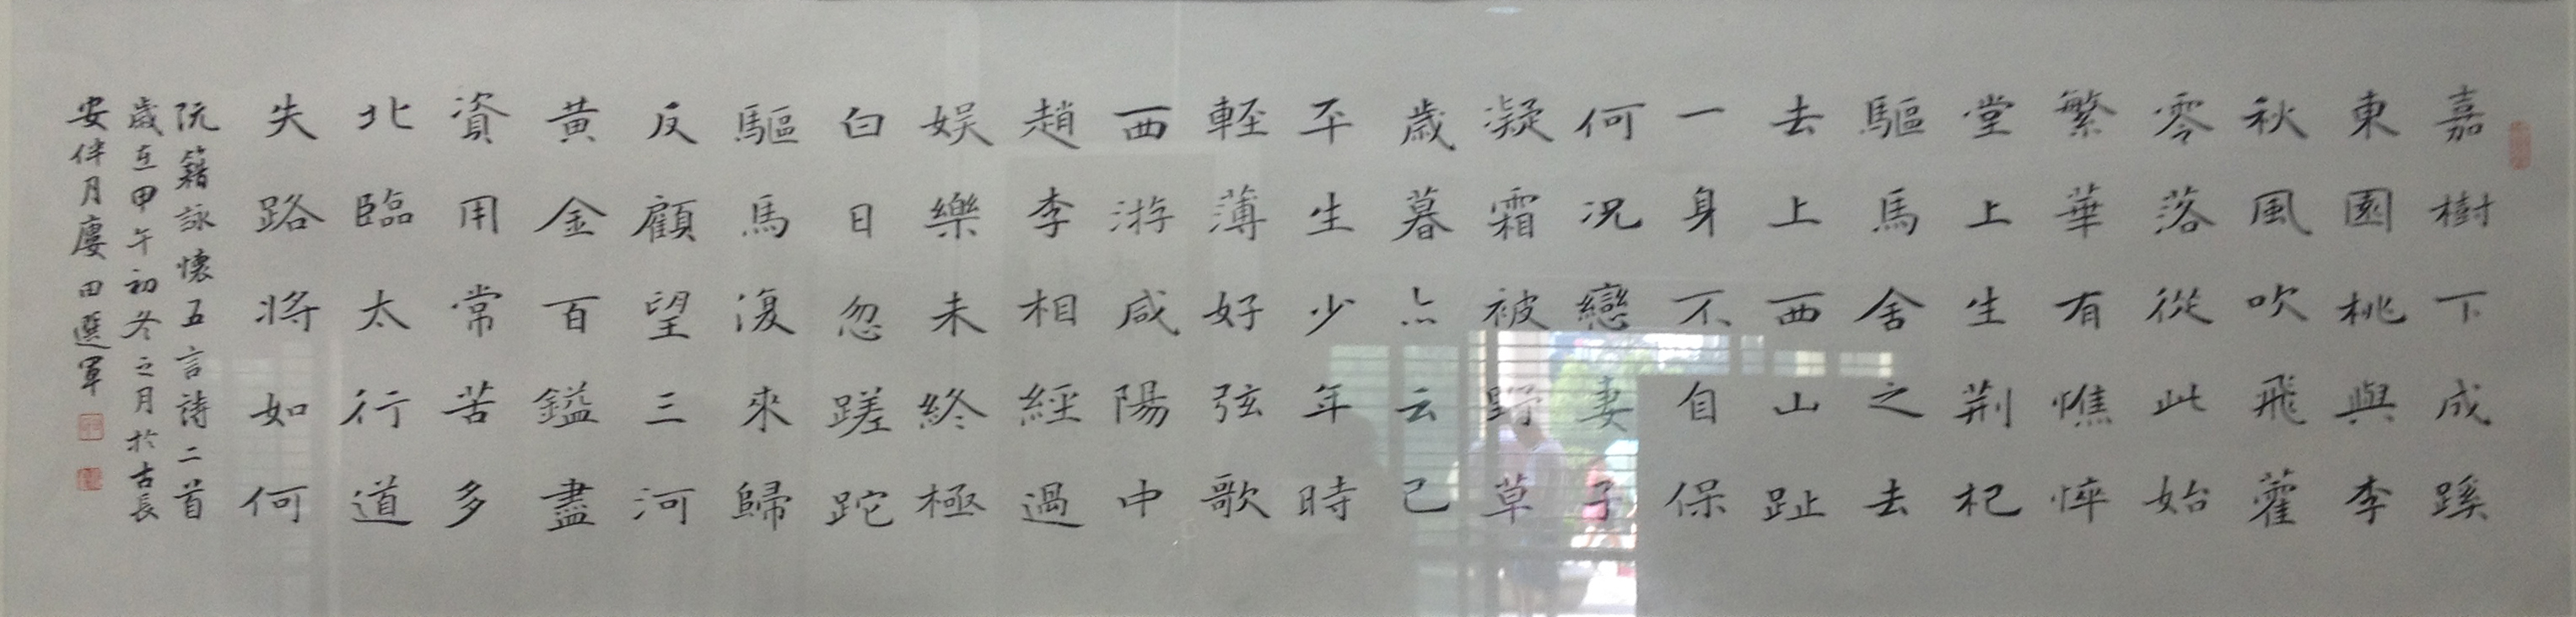 嘉樹下成蹊
東園桃與李
秋風吹飛藿
零落從此始
繁華有憔悴
堂上生荆杞
驅馬舍之去
去上西山趾
一身不自保
何況戀妻子
凝霜被野草
歲暮亦云已
平生少年時
輕薄好弦歌
西游咸陽中
趙李相經過
娱樂未終極
白日忽蹉跎
驅馬復來歸
反顧望三河
黄金百鎰盡
資用常苦多
北臨太行道
失路將如何
阮籍詠懷五言詩二首
歲在甲午初冬之月於古長
安伴月廔田選軍